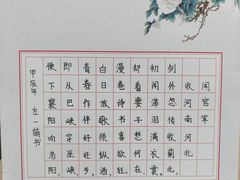 闻官军
收河南河北
剑外忽传收蓟北，
初闻涕泪满衣裳。
却看妻子愁何在，
漫卷诗书喜欲狂。
白日放歌须纵酒，
青春作伴好还乡。
即从巴峡穿巫峡，
便下襄阳向洛阳。
甲辰年 左一萌书